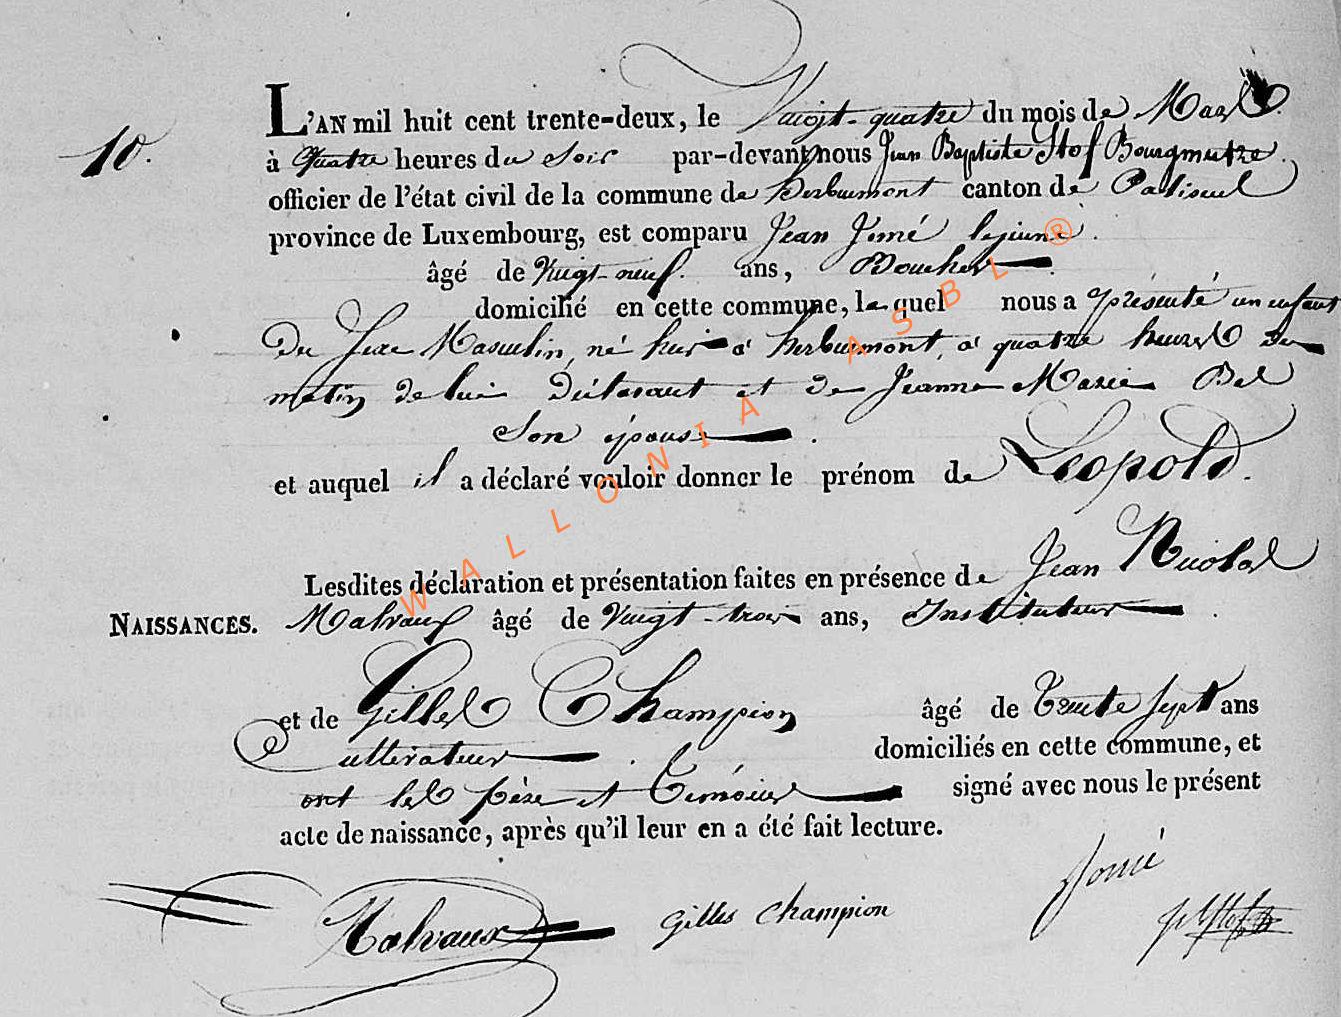 10.
L'AN mil huit cent trente-deux, le Vingt-quatre du mois de Mars
à Quatre heures du soir par-devant nous Jean Baptiste Stof Bourgmestre
officier de l'état civil de la commune de herbeumont canton de Paliseul
province de Luxembourg, est comparu Jean Jomé lejeune.
âgé de Vingt-neuf ans, Boucher.
domicilié en cette commune, lequel nous a présenté un enfant
du Sexe Masculin, né hier à herbeumont, à quatre heures du
matin de lui Déclarant et de Jeanne Marie Bal
Son épouse.
et auquel il a déclaré vouloir donner le prénom de Leopold.
Lesdites déclaration et présentation faites en présence de Jean Nicolas
NAISSANCES. Malvaux âgé de Vingt-trois ans, Instituteur.
et de Gilles Champion âgé de Trente Sept ans
Cultivateur. domiciliés en cette commune, et
ont les père et Témoins signé avec nous le présent
acte de naissance, après qu'il leur en a été fait lecture.
Malvaux Gilles Champion Jomé
WALLONIA ASBL ®